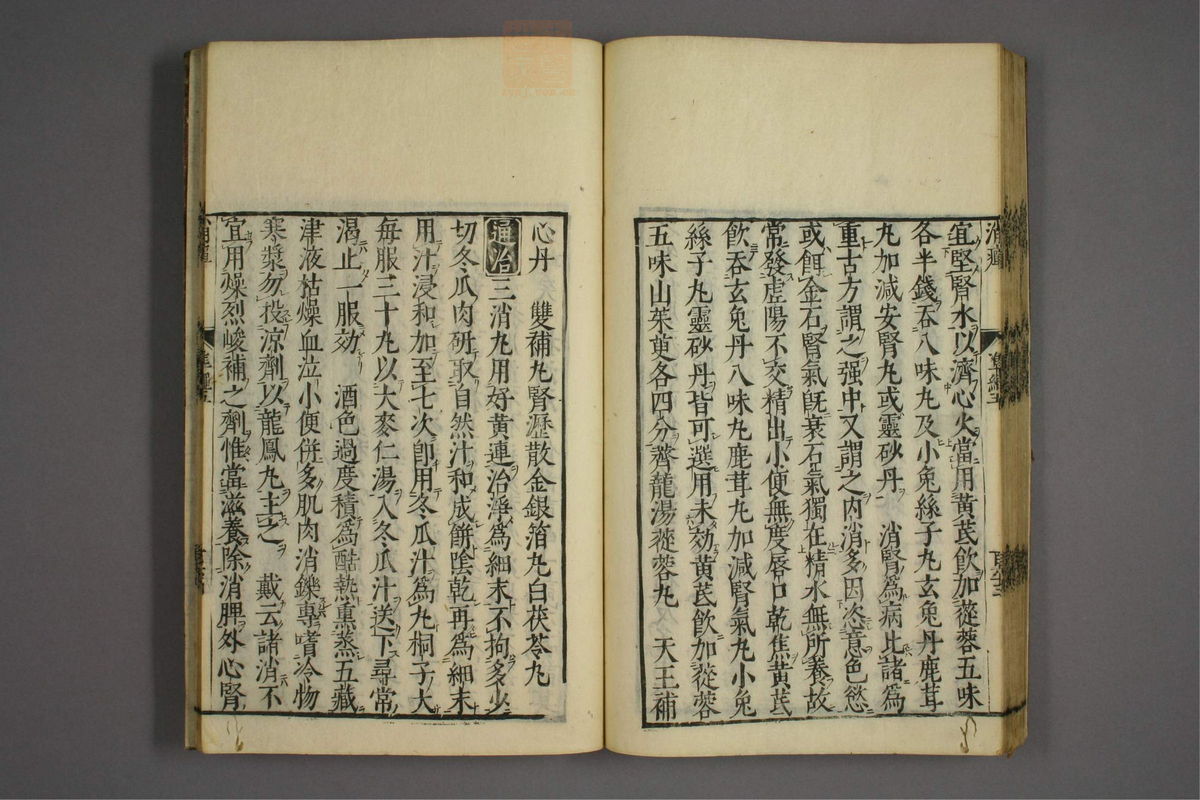 宜堅腎水以濟心火當用黃芪飲加蓯蓉五味
各半錢吞八味丸及小兔絲子丸玄兔丹鹿茸
丸加減安腎丸或靈砂丹　消腎爲病比諸爲
重古方謂之强中又謂之內消多因恣意色慾
或餌金石腎氣既衰石氣獨在精水無所養故
常發虛陽不交精出小便無度唇口乾焦黃芪
飲吞玄兔丹八味丸鹿茸丸加減腎氣丸小兔
絲子丸靈砂丹皆可選用未効黃芪飲加蓯蓉
五味山茱萸各四分薺龍湯蓯蓉丸　天王補
心丹　雙補丸腎瀝散金銀箔丸白茯苓丸
通治三消丸用好黃連治淨爲細末不拘多少
切冬瓜肉研取自然汁和成餅陰乾再爲細末
用汁浸和加至七次卽用冬瓜汁爲丸桐子大
每服三十丸以大麥仁湯入冬瓜汁送下尋常
渴止一服効　酒色過度積爲酷熱熏蒸五藏
津液枯燥血泣小便併多肌肉消鑠專嗜冷物
寒漿勿投凉劑以龍鳳丸主之　戴云諸消不
宜用燥烈峻補之劑惟當滋養除消脾外心腎